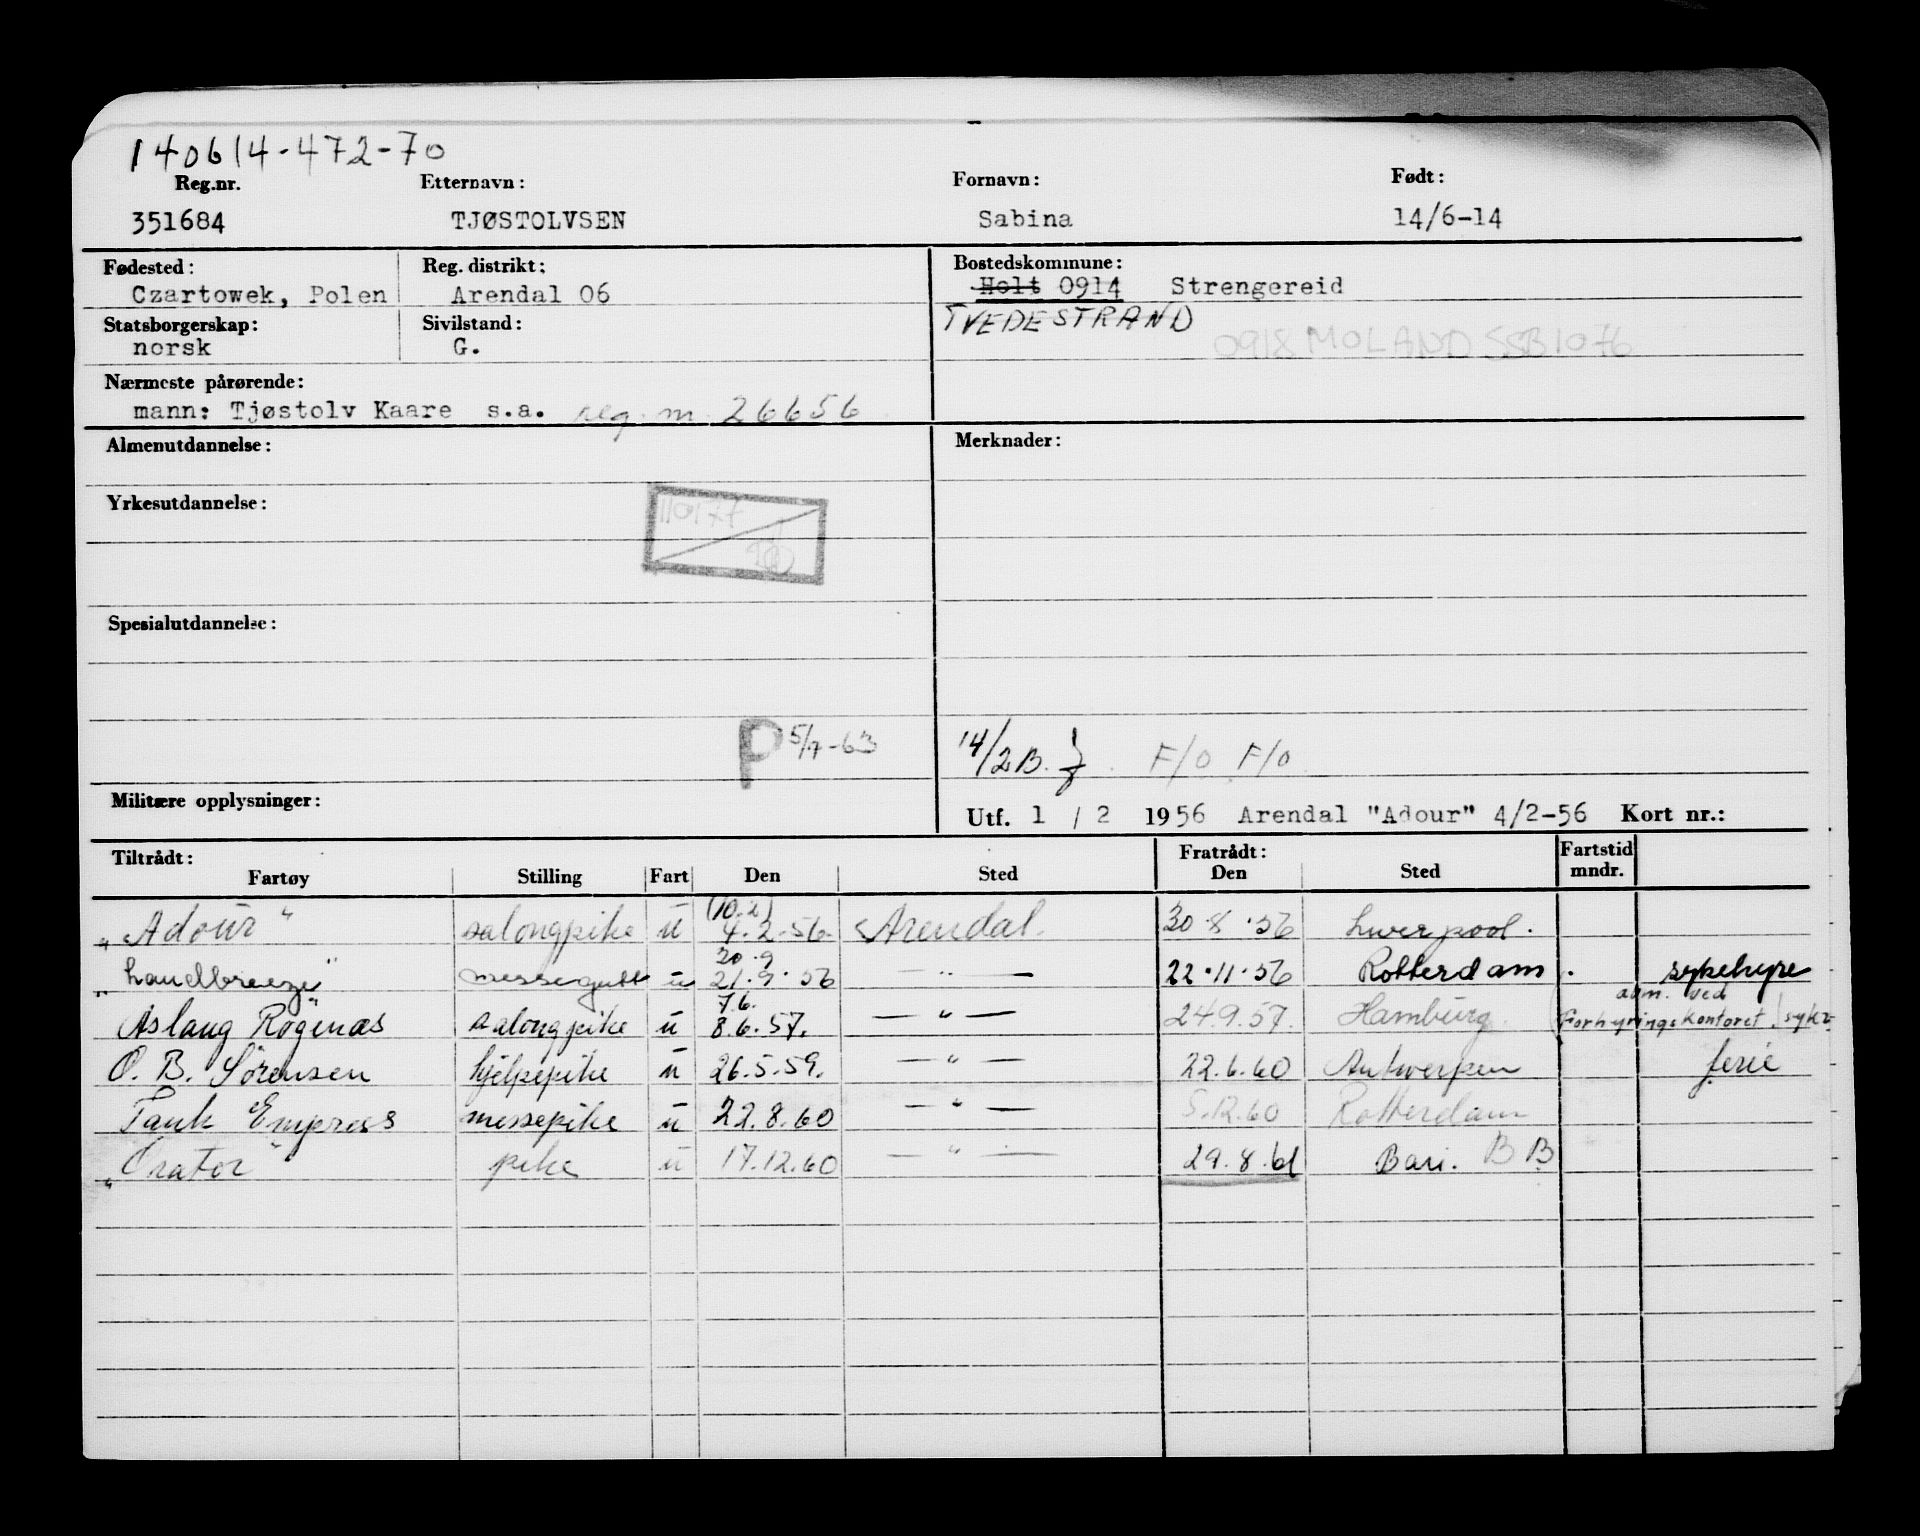 140614-472-70
Reg.nr. Etternavn: Fornavn: Født:
351684 TJØSTOLVSEN Sabina 14/6-14
Fødested: Reg. distrikt: Bostedskommune:
Czartowek, Polen Arendal 06 Holt 0914 Strengereid
Statsborgerskap: Sivilstand: TVEDESTRAND
norsk G. 0918 MOLAND SSB 1076
Nærmeste pårørende:
mann: Tjøstolv Kaare s.a. reg. nr. 26656
Almenutdannelse: Merknader:
Yrkesutdannelse:
110177
Spesialutdannelse:
P 5/7-63 14/2 B. F/O F/O
Militære opplysninger: Utf. 1 / 2 1956 Arendal "Adour" 4/2-56 Kort nr.:
Tiltrådt: Fratrådt: Fartstid
Fartøy Stilling Fart Den Sted Den Sted mndr.
(10.2)
"Adour" salongpike u 4.2.56 Arendal. 30.8.56 Liverpool.
20.9
"Landbreeze" messegutt u 21.9.56 — " — 22.11.56 Rotterdam. sykehyre
7.6. avm. ved
Aslaug Rogenæs salongpike u 8.6.57. — " — 24.9.57. Hamburg. Forhyringskontoret, syk
O. B. Sørensen hjelpepike u 26.5.59. — " — 22.6.60 Antwerpen ferie
Tank Empress messepike u 22.8.60 — " — 5.12.60 Rotterdam
"Crator" pike u 17.12.60 — " — 29.8.61 Bari. B B